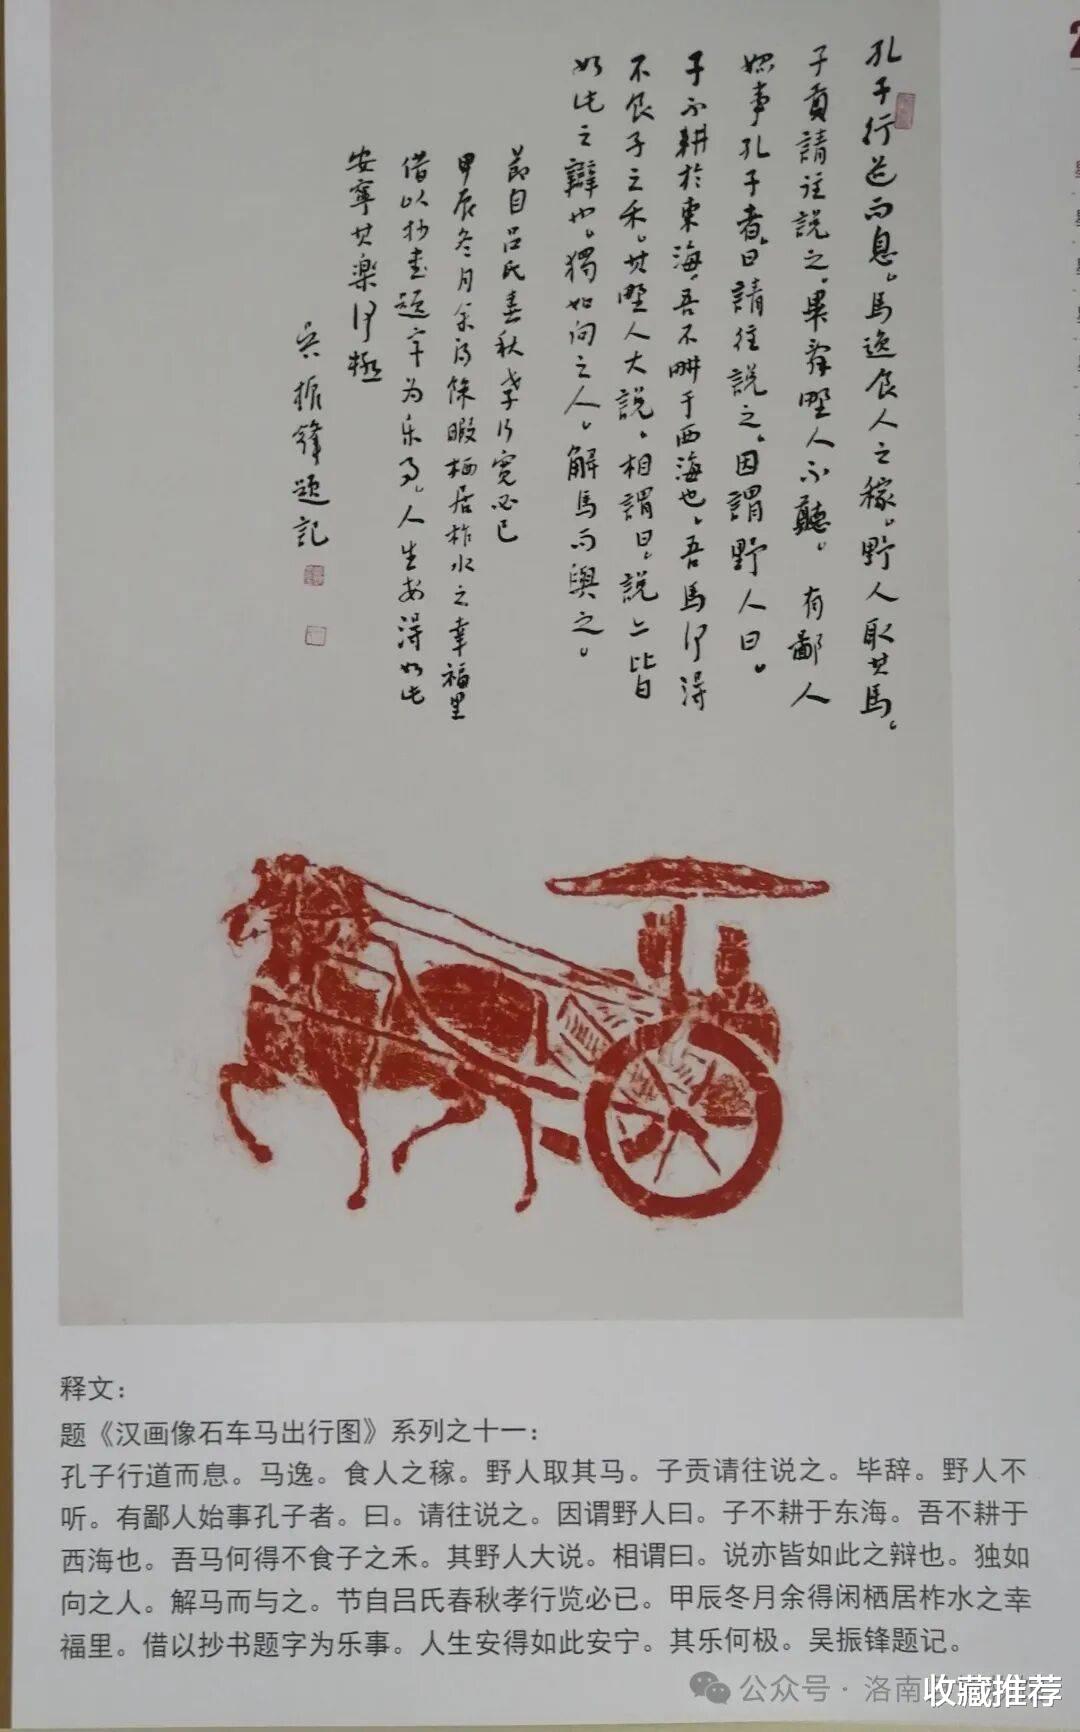 孔子行道而息。馬逸食人之稼。野人取其馬。
子貢請往説之。畢辞野人不聽。有鄙人
始事孔子者。曰請往説之。因謂野人曰。
子不耕於東海。吾不耕于西海也。吾馬何得
不食子之禾。其野人大説。相謂曰。説亦皆
如此之辯也。獨如向之人。解馬而與之。
節自呂氏春秋孝行覽必已
甲辰冬月余得餘暇栖居柞水之幸福里
借以抄書題字为乐事。人生安得如此
安寧其樂何極
吴振鋒題記
释文：
题《汉画像石车马出行图》系列之十一：
孔子行道而息。马逸。食人之稼。野人取其马。子贡请往说之。毕辞。野人不
听。有鄙人始事孔子者。曰。请往说之。因谓野人曰。子不耕于东海。吾不耕于
西海也。吾马何得不食子之禾。其野人大说。相谓曰。说亦皆如此之辩也。独如
向之人。解马而与之。节自吕氏春秋孝行览必已。甲辰冬月余得闲栖居柞水之幸
福里。借以抄书题字为乐事。人生安得如此安宁。其乐何极。吴振锋题记。
公众号·洛南
收藏推荐